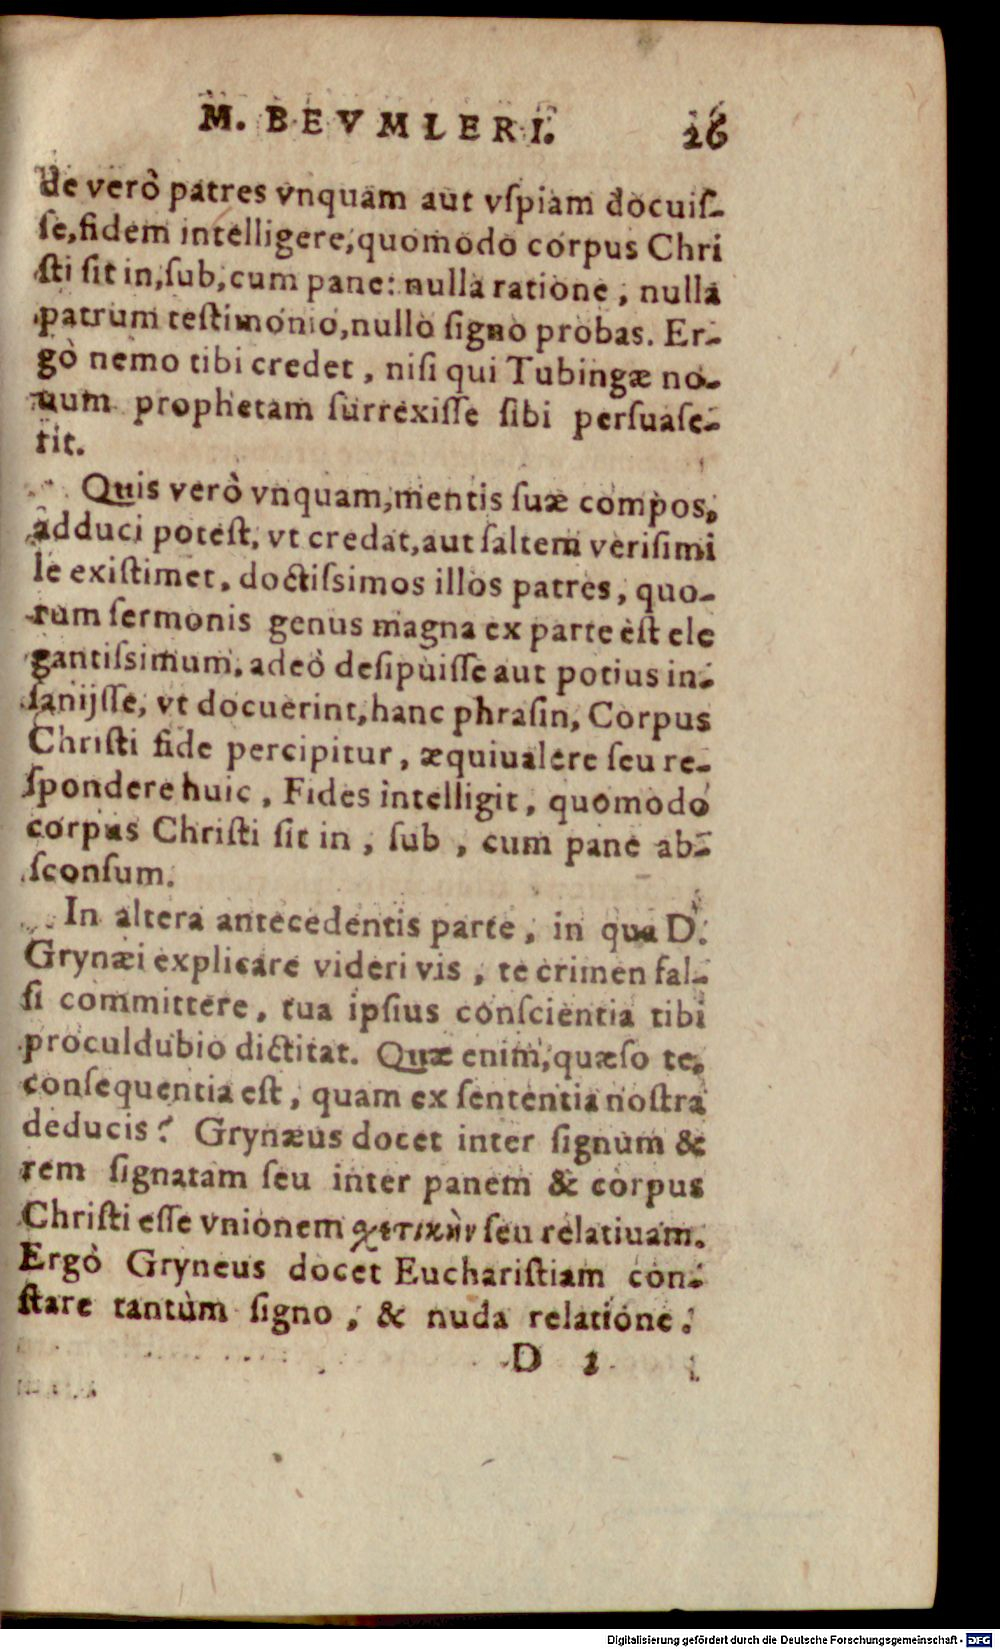 M. BEVMLERI. 26
de verò patres vnquam aut vſpiam docuiſ-
ſe, fidem intelligere, quomodo corpus Chri
ſti ſit in, ſub, cum pane: nulla ratione, nulla
patrum teſtimonio, nullo ſigno probas. Er-
gò nemo tibi credet, niſi qui Tubingæ no-
uum prophetam ſurrexiſſe ſibi perſuaſe-
rit.
Quis verò vnquam, mentis ſuæ compos,
adduci poteſt, vt credat, aut ſaltem veriſimi
le exiſtimet, doctiſsimos illos patres, quo-
rum ſermonis genus magna ex parte eſt ele
gantiſsimum, adeò deſipuiſſe aut potius in-
ſanijſſe, vt docuerint, hanc phraſin, Corpus
Chriſti fide percipitur, æquiualere ſeu re-
ſpondere huic, Fides intelligit, quomodo
corpus Chriſti ſit in, ſub, cum pane ab-
ſconſum.
In altera antecedentis parte, in qua D.
Grynæi explicare videri vis, te crimen fal-
ſi committere, tua ipſius conſcientia tibi
proculdubio dictitat. Quæ enim, quæſo te,
conſequentia eſt, quam ex ſententia noſtra
deducis? Grynæus docet inter ſignum &
rem ſignatam ſeu inter panem & corpus
Chriſti eſſe vnionem χετικὴν ſeu relatiuam.
Ergò Gryneus docet Euchariſtiam con-
ſtare tantùm ſigno, & nuda relatione.
D 2
Digitalisierung gefördert durch die Deutsche Forschungsgemeinschaft - DFG